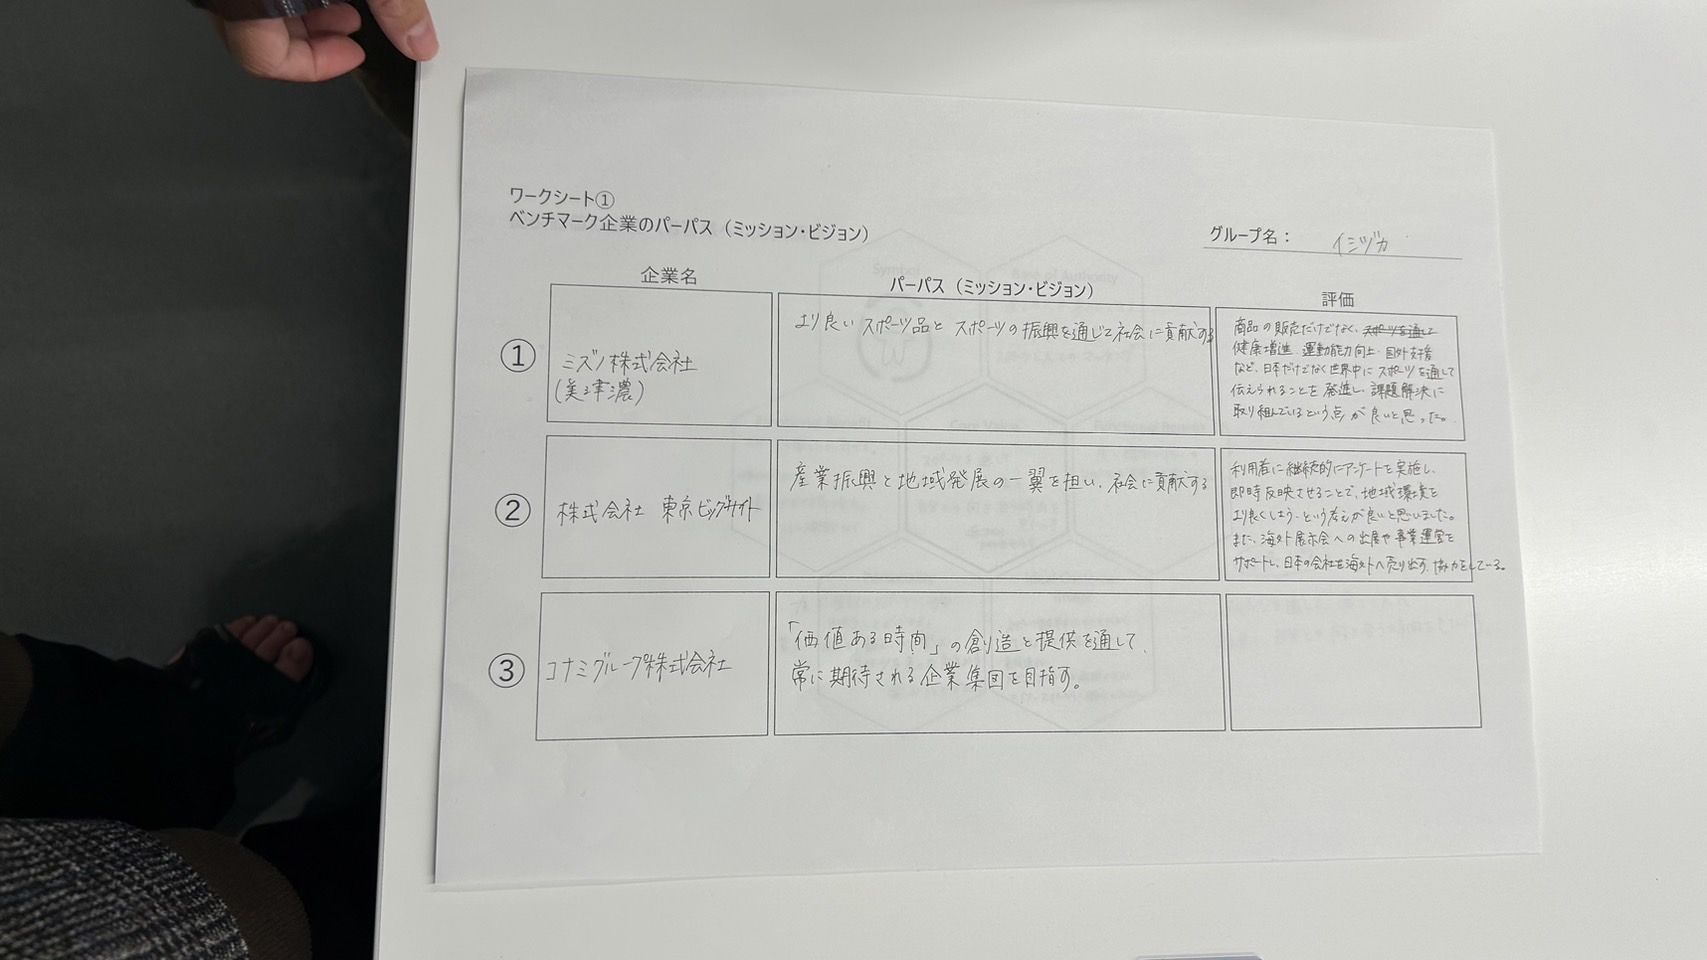 ワークシート①
ベンチマーク企業のパーパス（ミッション・ビジョン）
グループ名： イシヅカ
企業名
パーパス（ミッション・ビジョン）
評価
①
ミズノ株式会社
(美津濃)
より良い スポーツ品と スポーツの 振興を通じて社会に貢献する
商品の販売だけでなく、スポーツを通して
健康増進、運動能力向上・国外支援
など、日本だけでなく世界中に スポーツを通して
伝えられることを 発進し、課題解決に
取り組んでいるという点が良いと思った。
②
株式会社 東京ビッグサイト
産業振興と地域発展の一翼を担い、社会に貢献する
利用者に継続的にアンケートを実施し、
即時反映させることで、地域環境を
より良くしよう、という考えが良いと思いました。
また、海外展示会への出展や事業運営を
サポートし、日本の会社を海外へ売り出す、協力をしている。
③
コナミグループ株式会社
「価値ある時間」の創造と提供を通して、
常に期待される企業集団を目指す。